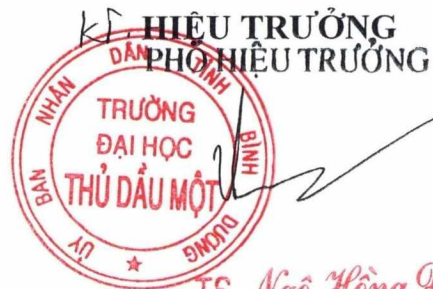 KT. HIỆU TRƯỞNG
PHÓ HIỆU TRƯỞNG
ỦY BAN NHÂN DÂN TỈNH BÌNH DƯƠNG
TRƯỜNG
ĐẠI HỌC
THỦ DẦU MỘT
TS. Ngô Hồng